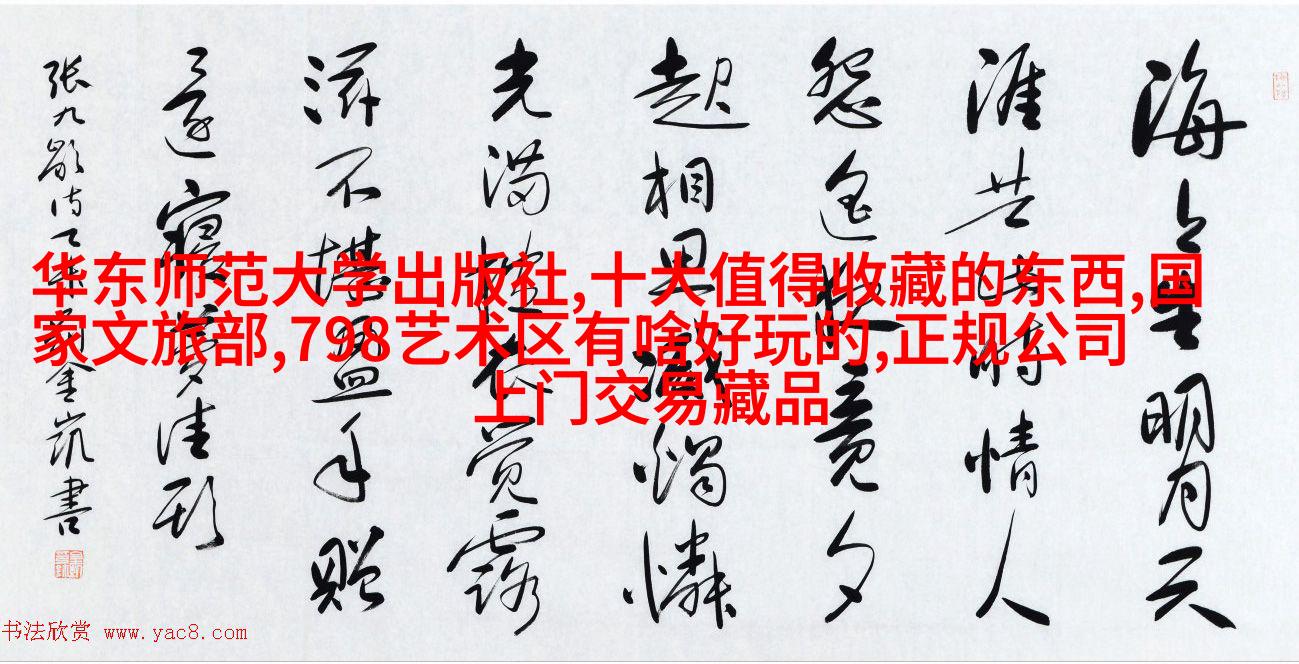 华东师范大学出版社,十大值得收藏的东西,国
家文旅部,798艺术区有啥好玩的,正规公司
上门交易藏品
海上生明月天
涯共此時情人
怨遙夜竟夕
起相思滅燭憐
光滿披衣覺露
滋不堪盈手贈
還寢夢佳期
張九齡詩 書
书法欣赏 www.yac8.com